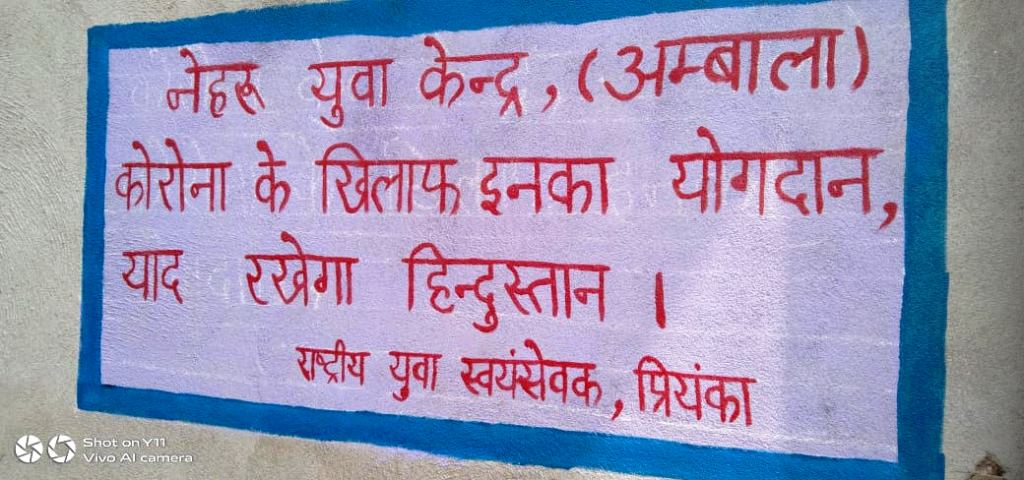 नेहरू युवा केन्द्र, (अम्बाला)
कोरोना के खिलाफ इनका योगदान,
याद रखेगा हिन्दुस्तान ।
राष्ट्रीय युवा स्वयंसेवक, प्रियंका
Shot on Y11
Vivo AI camera